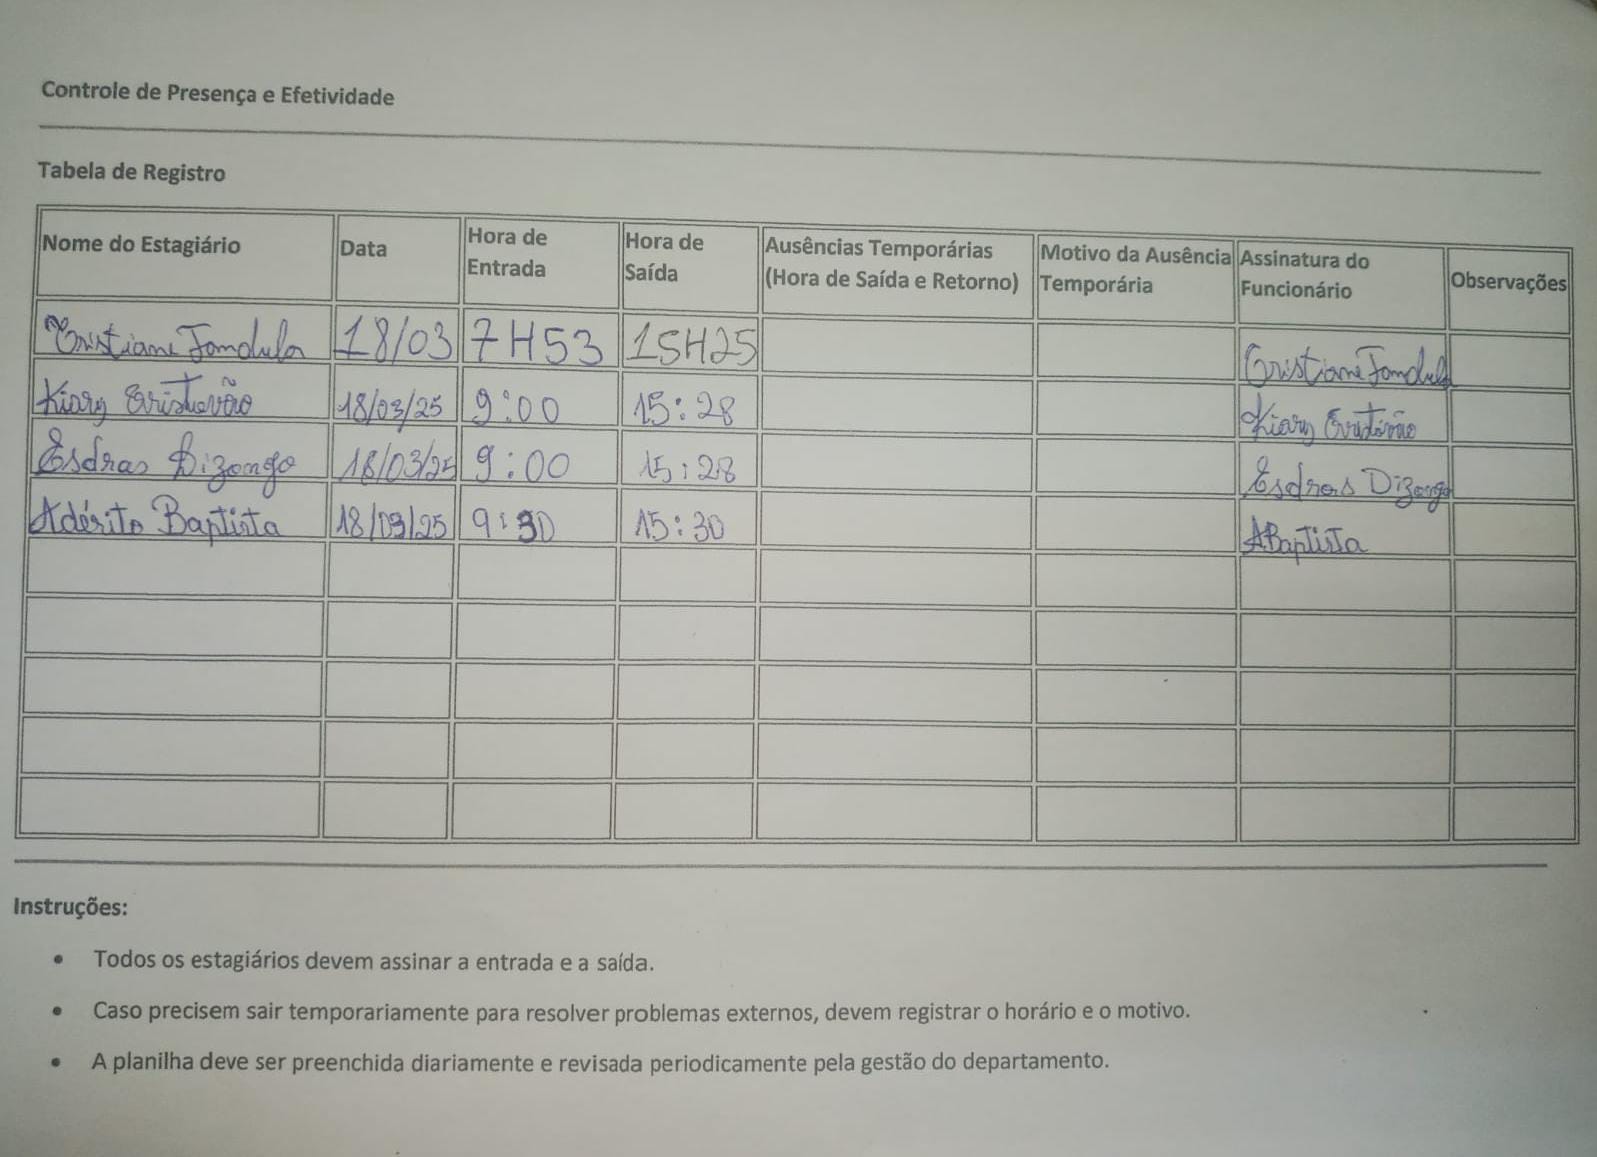 Controle de Presença e Efetividade
Tabela de Registro
Nome do Estagiário Data Hora de Entrada Hora de Saída Ausências Temporárias (Hora de Saída e Retorno) Motivo da Ausência Temporária Assinatura do Funcionário Observações
Cristiane Jamdula 18/03 7H53 15H25 Cristiane Jamdula
Kiary Cristóvão 18/03/25 9:00 15:28 Kiary Cristóvão
Esdras Dizongo 18/03/25 9:00 15:28 Esdras Dizongo
Adérito Baptista 18/03/25 9:30 15:30 ABaptista
Instruções:
• Todos os estagiários devem assinar a entrada e a saída.
• Caso precisem sair temporariamente para resolver problemas externos, devem registrar o horário e o motivo.
• A planilha deve ser preenchida diariamente e revisada periodicamente pela gestão do departamento.